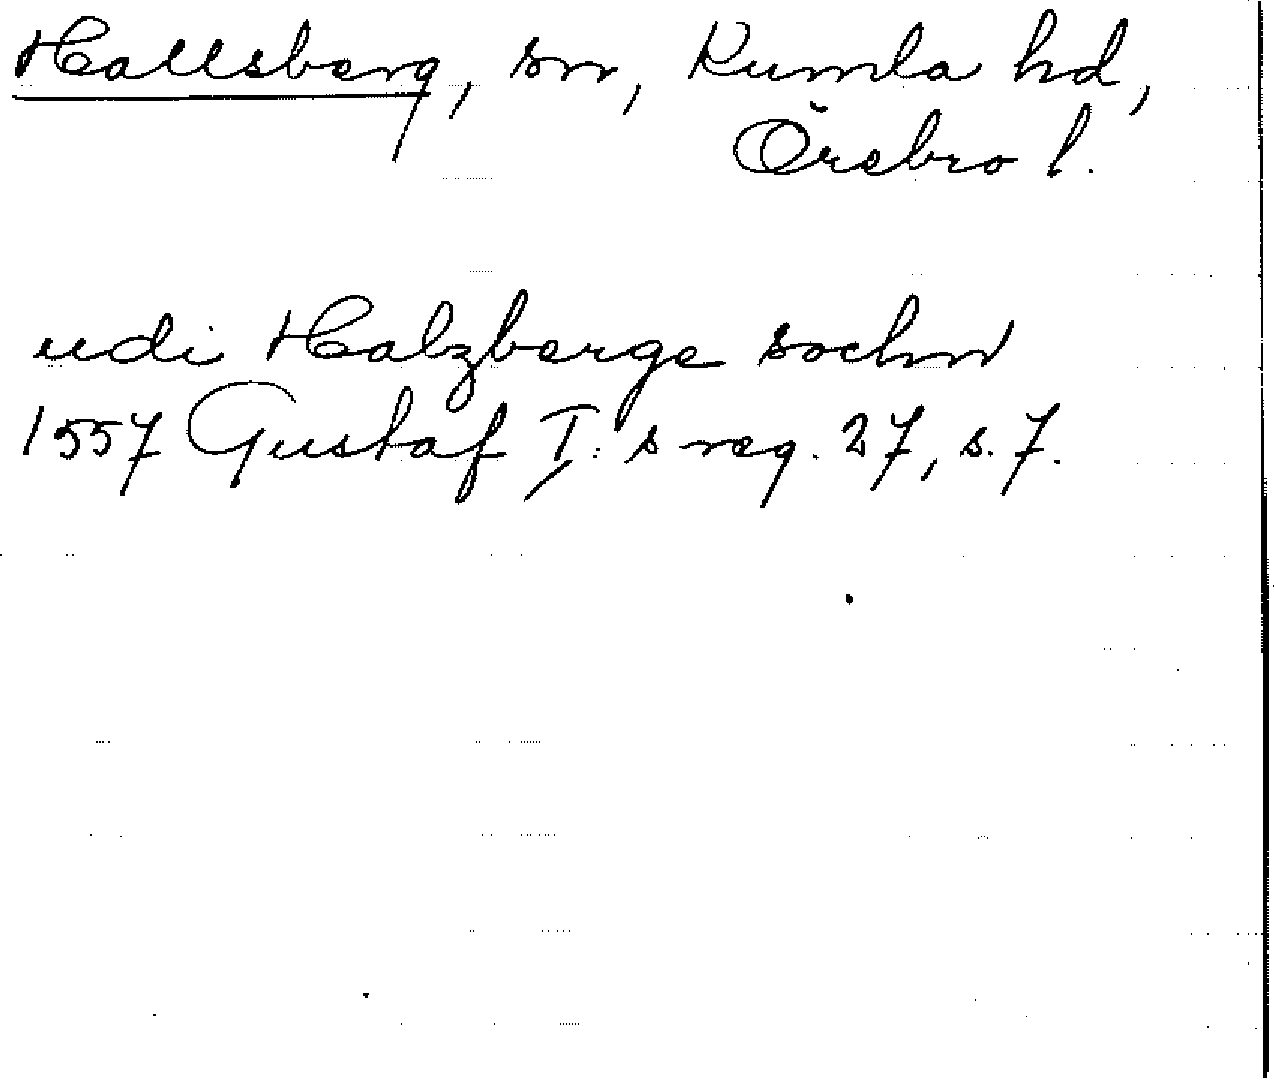 Hallsberg, sn, Kumla hd,
Örebro l.
udi Halzberge sochn
1557 Gustaf I:s reg. 27, s. 7.